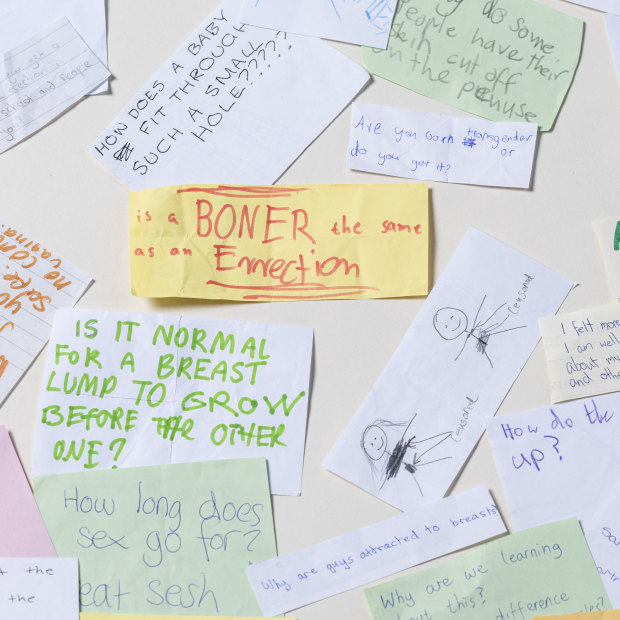 HOW DOES A BABY
FIT THROUGH
SUCH A SMALL
HOLE?????
do some
people have their
skin cut off
on the
Are you born transgender
or
do you get it?
school and people
is a BONER the same
as an Errection
IS IT NORMAL
FOR A BREAST
LUMP TO GROW
BEFORE THE OTHER
ONE?
censored
censored
I felt more
I am well
about my
and othe
How do the
up?
How long does
sex go for?
eat sesh
Why are guys attracted to breasts
Why are we learning
this?
difference
the
the